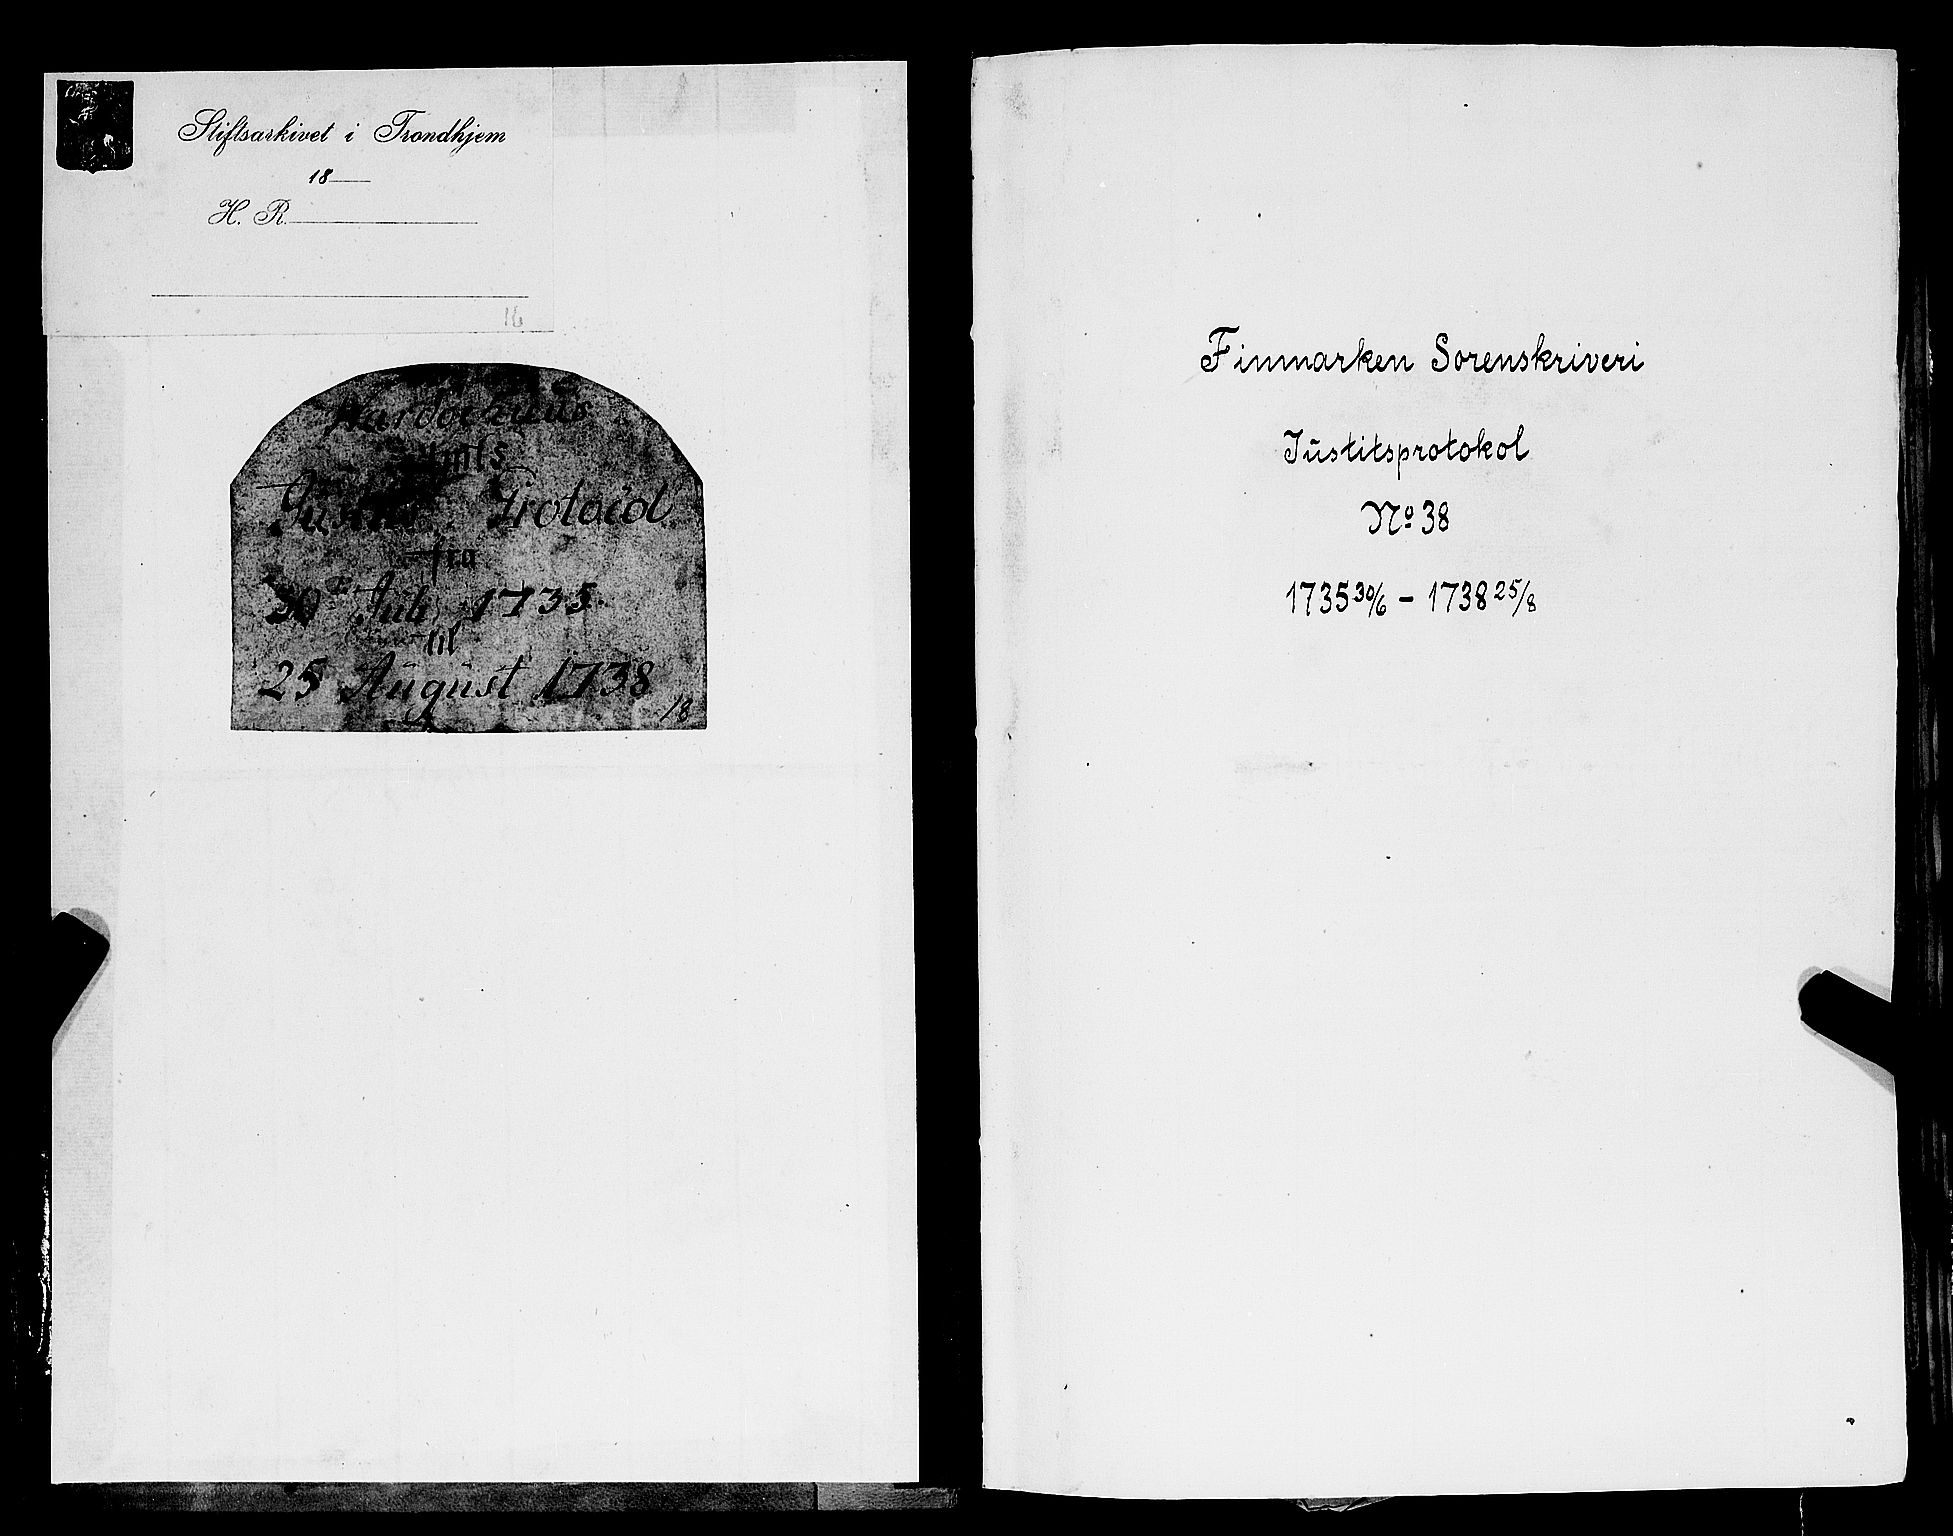 Stiftsarkivet i Trondhjem
18
H. R.
16
Wardoehuus
Amts
Protocol
fra
30
1735
til
25 August 1738
18
Finmarken Sorenskriveri
Justitsprotokol
No 38
1735 30/6 - 1738 25/8